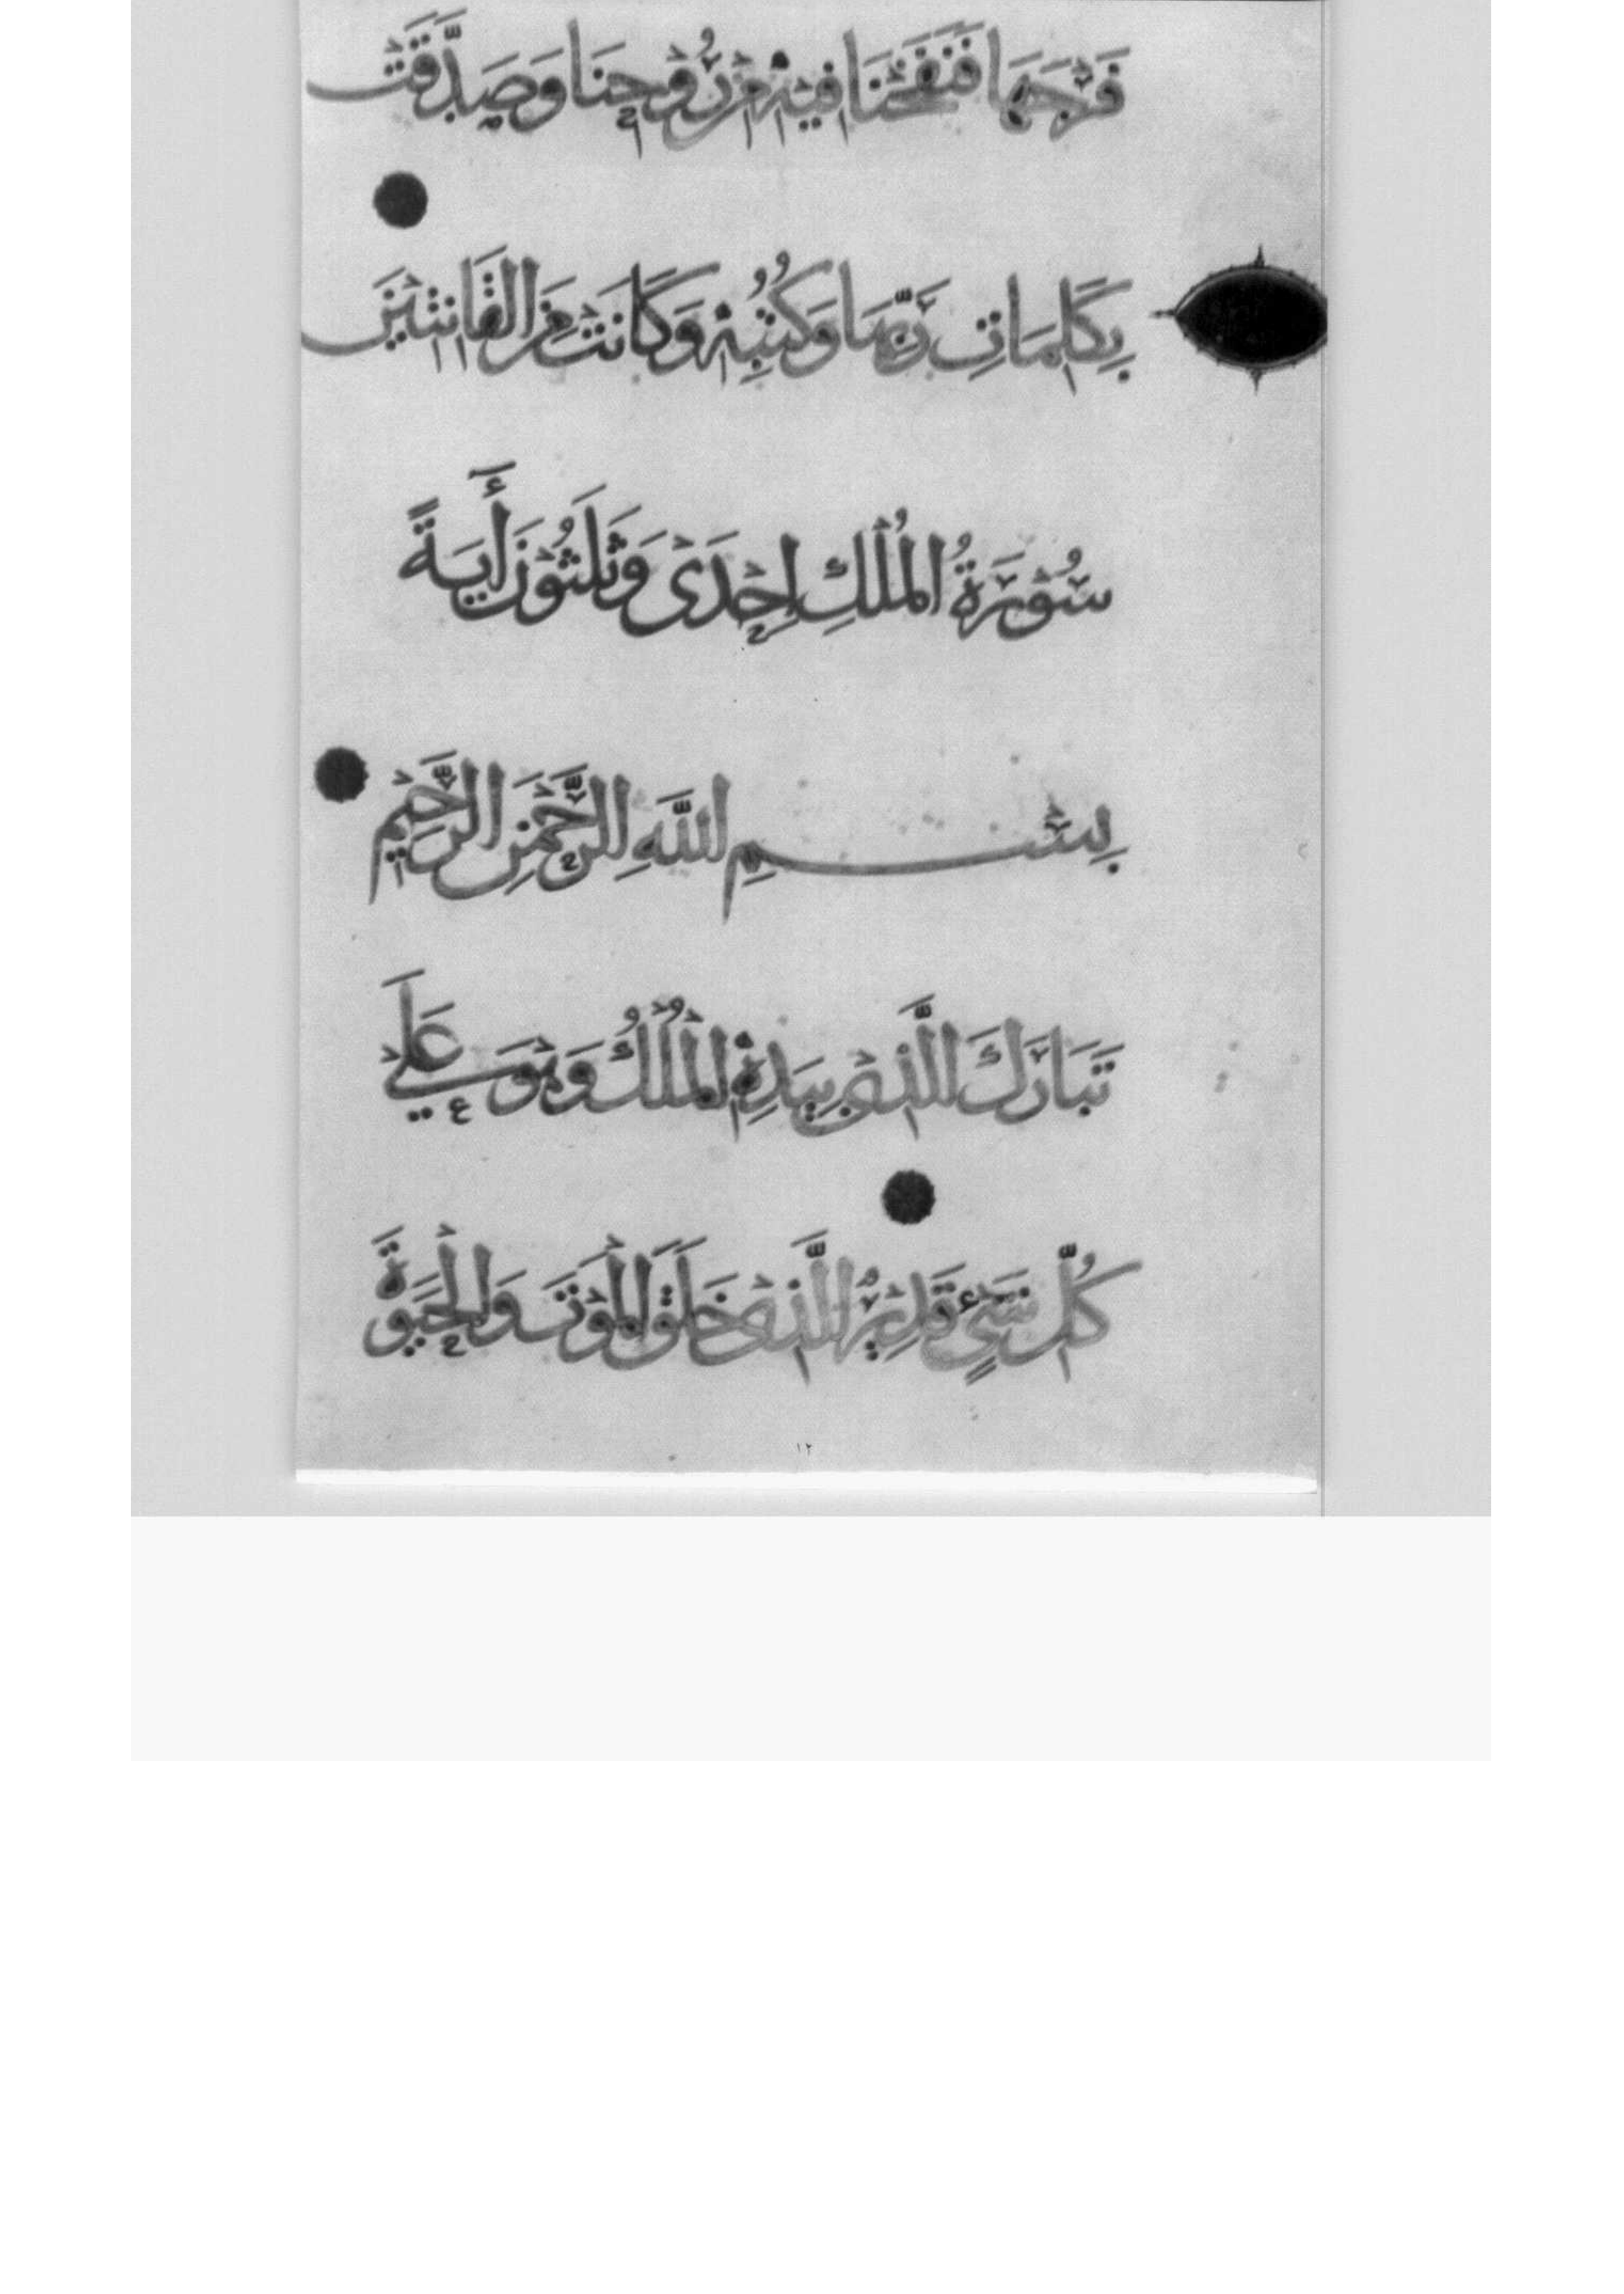 فَرْجَهَا فَنَفَخْنَا فِيْهِ مِنْ رُوْحِنَا وَصَدَّقَتْ
بِكَلِمَاتِ رَبِّهَا وَكُتُبِهٖ وَكَانَتْ مِنَ الْقَانِتِيْنَ
سُوْرَةُ الْمُلْكِ اِحْدَى وَثَلٰثُوْنَ أٰيَةً
بِسْمِ اللَّهِ الرَّحْمٰنِ الرَّحِيْمِ
تَبَارَكَ الَّذِيْ بِيَدِهِ الْمُلْكُ وَهُوَ عَلٰي
كُلِّ شَيْءٍ قَدِيْرٌ الَّذِيْ خَلَقَ الْمَوْتَ وَالْحَيٰوةَ
١٢